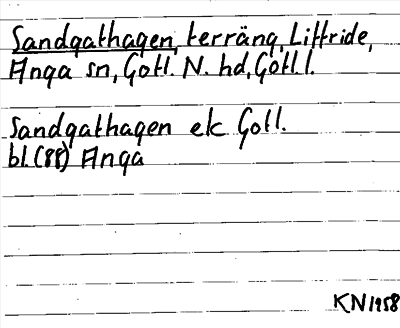 Sandgathagen, terräng, Littride,
Anga sn, Gotl. N. hd, Gotl. l.
Sandgathagen ek Gotl.
bl. (88) Anga
KN 1958